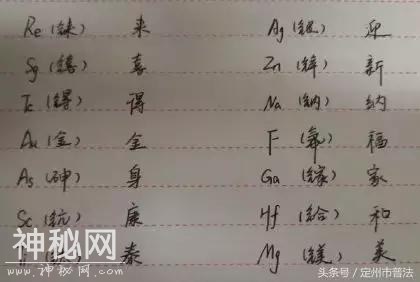 Re (铼) 来 Ag (银) 迎
Sg (𬭳) 喜 Zn (锌) 新
Tc (锝) 得 Na (钠) 纳
Au (金) 金 F (氟) 福
As (砷) 身 Ga (镓) 家
Sc (钪) 康 Hf (铪) 和
泰 Mg (镁) 美
神秘网
www.神秘网.com
头条号/定州市普法